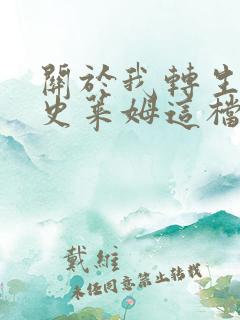 關於我轉生
史萊姆這檔
戴維
未經同意禁止轉載